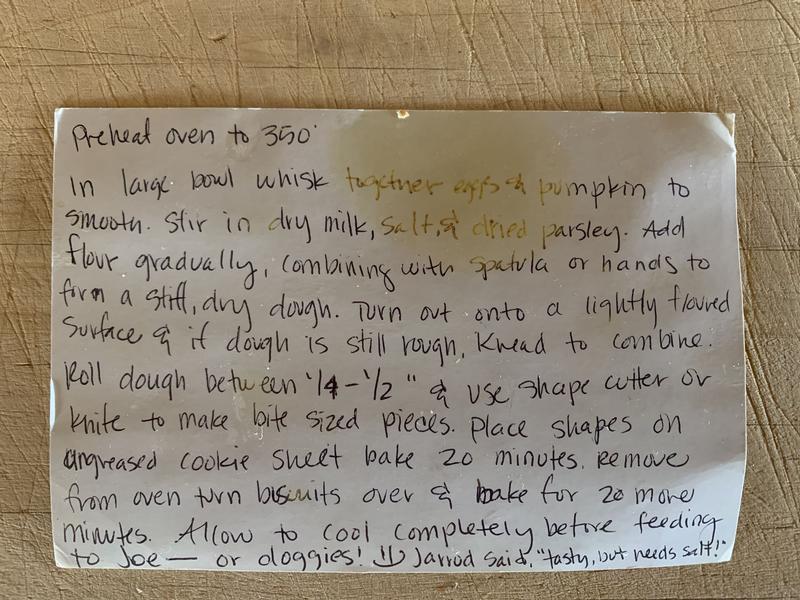 Preheat oven to 350°
In large bowl whisk together eggs & pumpkin to
smooth. Stir in dry milk, salt, & dried parsley. Add
flour gradually, combining with spatula or hands to
form a stiff, dry dough. Turn out onto a lightly floured
surface & if dough is still rough, knead to combine.
Roll dough between "1/4 - 1/2" & use shape cutter or
knife to make bite sized pieces. Place shapes on
ungreased cookie sheet bake 20 minutes. Remove
from oven turn biscuits over & bake for 20 more
minutes. Allow to cool completely before feeding
to Joe — or doggies! Jarrod said, "tasty, but needs salt!"